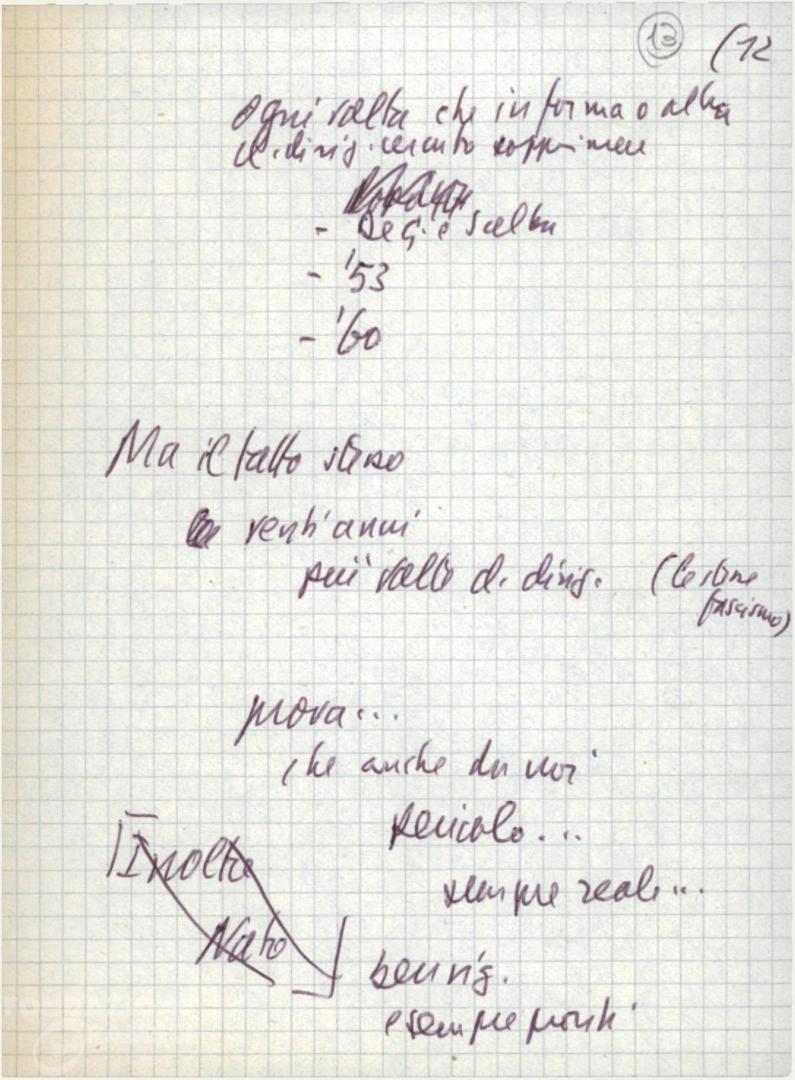 13 (12
Ogni volta che in forma o altra
cl. dirig. cercato sopprimere
- De G. e Scelba
- '53
- '60
Ma il fatto stesso
venti anni
più volte cl. dirig. (lezione
fascismo)
prova...
che anche da noi
pericolo...
sempre reale...
[Inoltre
Nato]
ben vig.
e sempre pronti